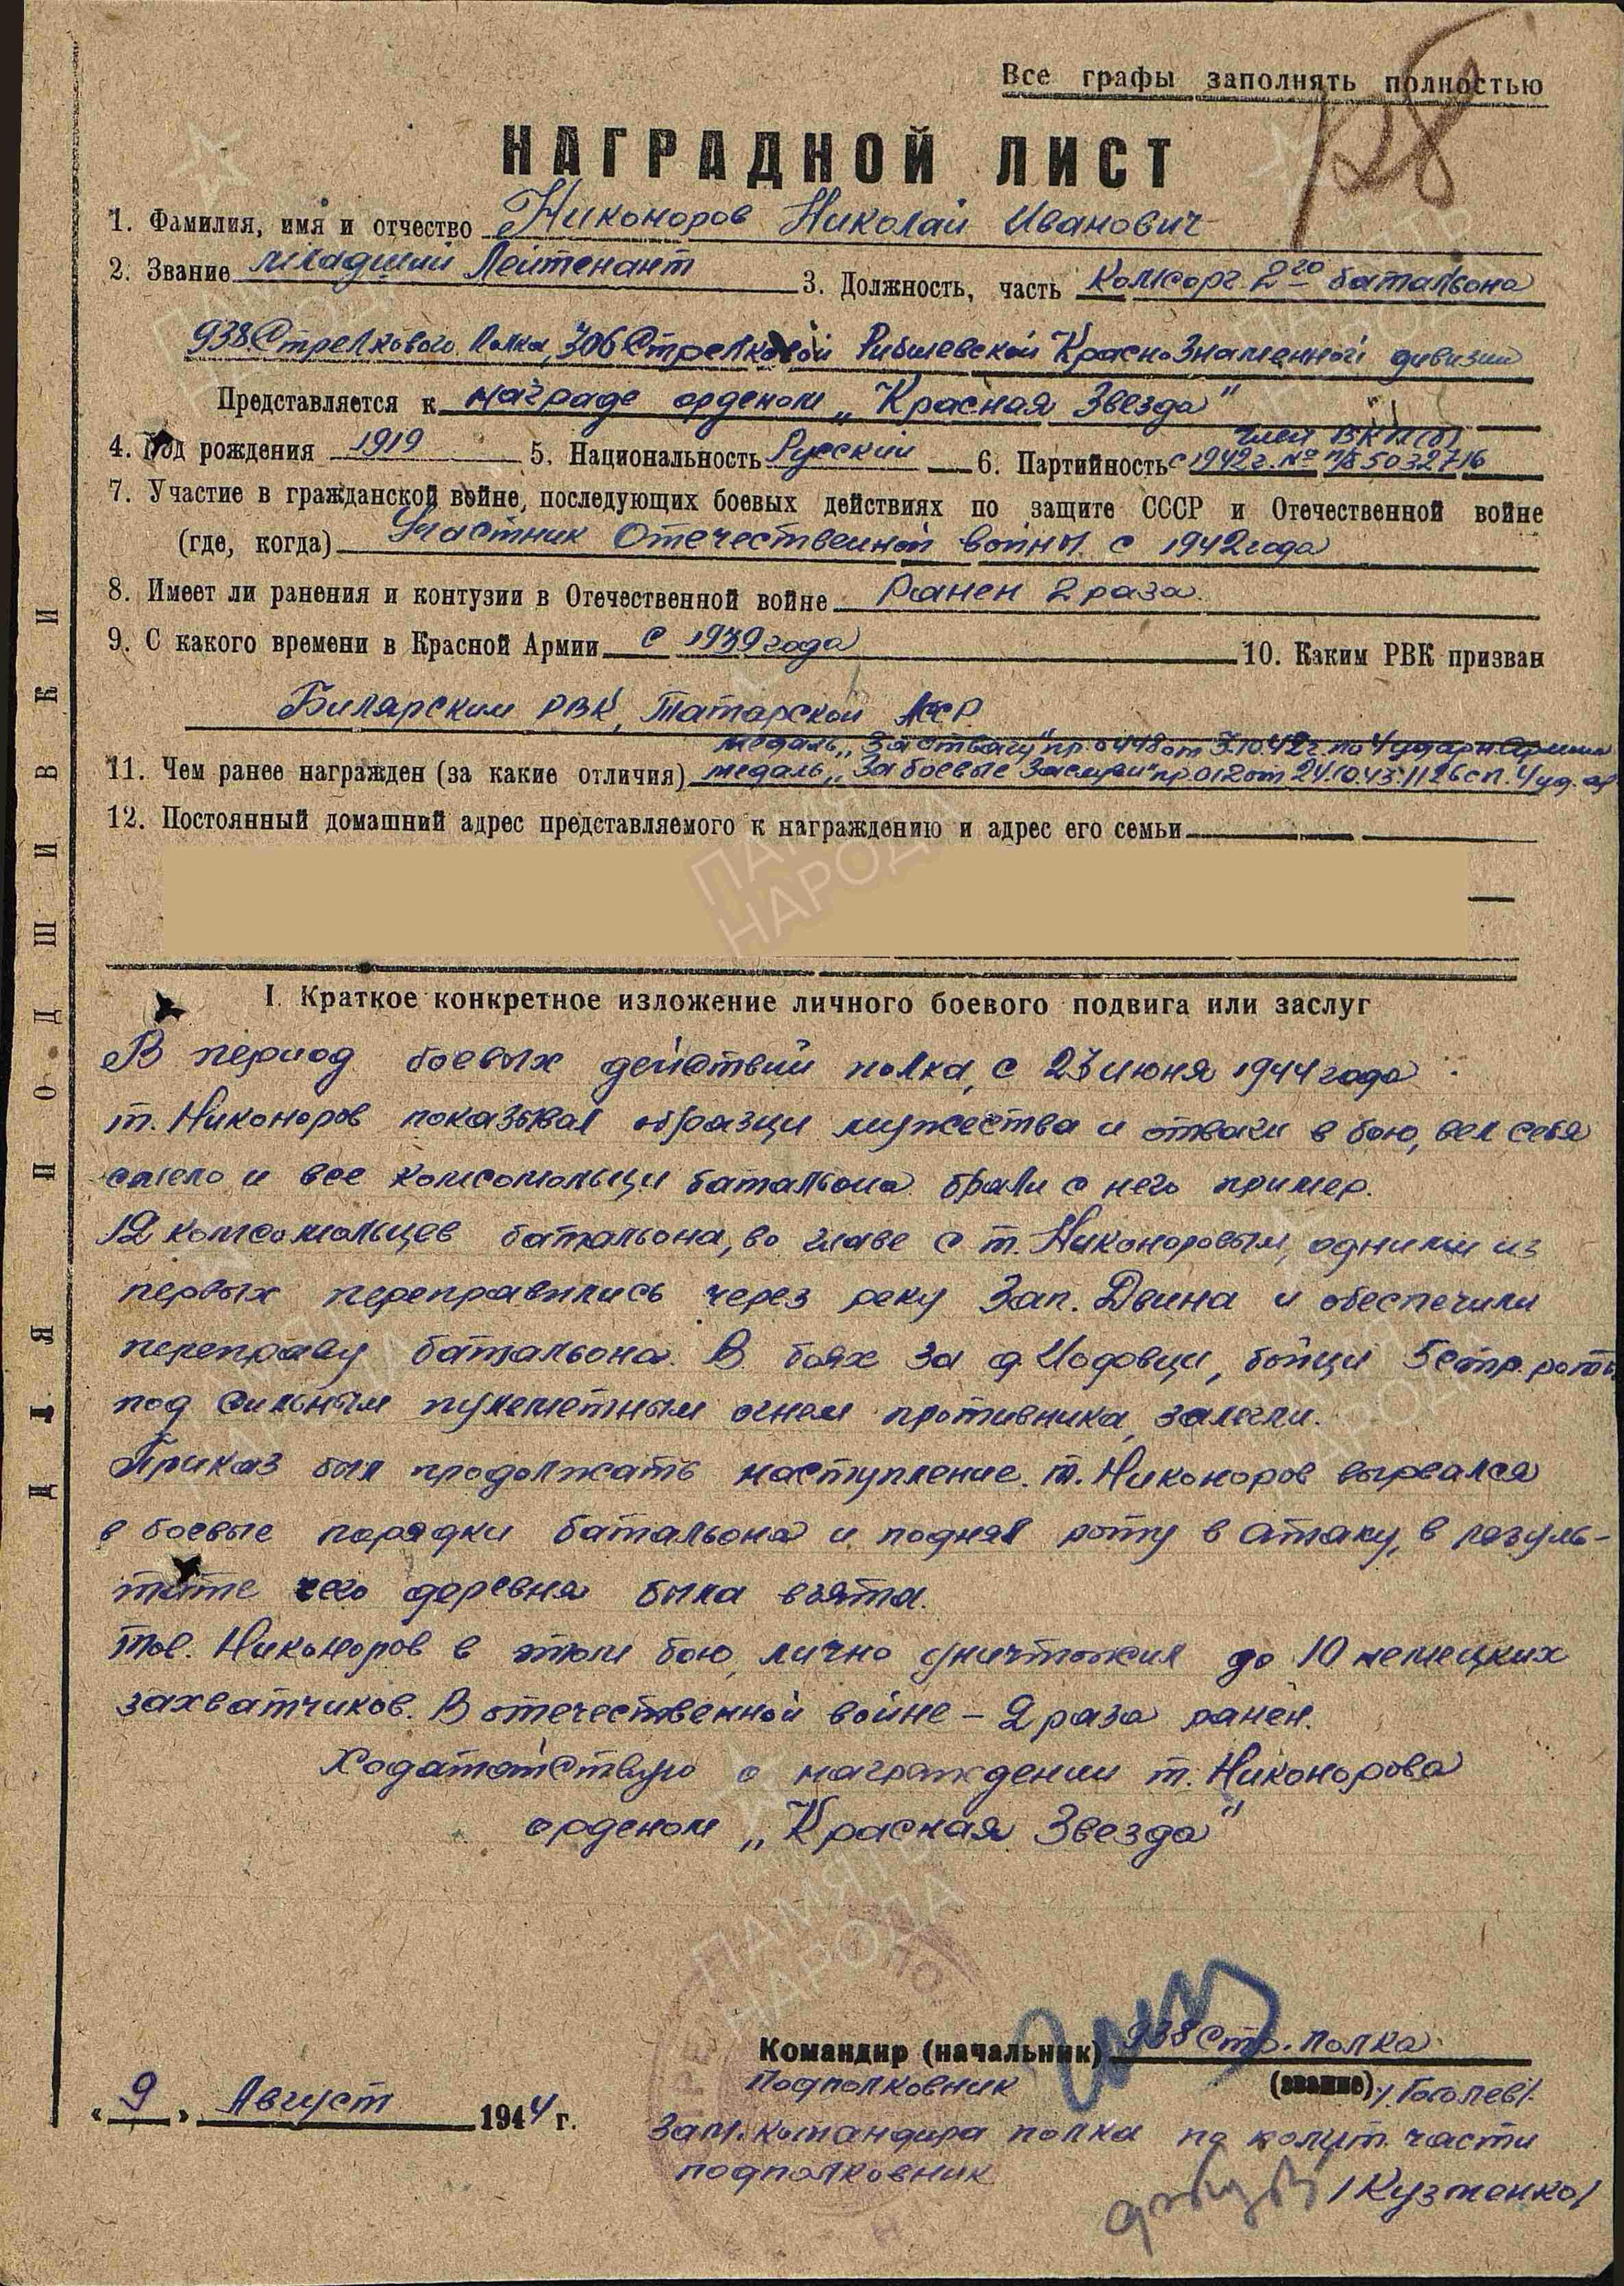 Все графы заполнять полностью
128
НАГРАДНОЙ ЛИСТ
1. Фамилия, имя и отчество Никоноров Николай Иванович
2. Звание младший Лейтенант 3. Должность, часть Комсорг 2го батальона
938 Стрелкового Полка, 306 Стрелковой Рибшевской Краснознаменной дивизии
Представляется к награде орденом „Красная Звезда"
член ВКП(б)
4. Год рождения 1919 5. Национальность Русский 6. Партийность с 1942 г. № п/б 5032716
7. Участие в гражданской войне, последующих боевых действиях по защите СССР и Отечественной войне
(где, когда) Участник Отечественной войны с 1942 года
8. Имеет ли ранения и контузии в Отечественной войне Ранен 2 раза.
9. С какого времени в Красной Армии с 1939 года 10. Каким РВК призван
Билярским РВК, Татарской АССР.
медаль „За отвагу" пр. 0448 от 7.10.42 г. по 4 ударн. Армии
11. Чем ранее награжден (за какие отличия) медаль „За боевые Заслуги" пр 012 от 24.10.43. 1126 сп. 4 уд. ар
12. Постоянный домашний адрес представляемого к награждению и адрес его семьи
I. Краткое конкретное изложение личного боевого подвига или заслуг
В период боевых действий полка, с 23 июня 1944 года
т. Никоноров показывал образцы мужества и отваги в бою, вел себя
смело и все комсомольцы батальона брали с него пример.
12 комсомольцев батальона, во главе с т. Никоноровым, одними из
первых переправились через реку Зап. Двина и обеспечили
переправу батальона. В боях за д. Иодовци, бойцы 5 стр. роты
под сильным пулеметным огнем противника, залегли.
Приказ был продолжать наступление. т. Никоноров вырвался
в боевые порядки батальона и поднял роту в атаку, в резуль-
тате чего деревня была взята.
Тов. Никоноров в этом бою, лично уничтожил до 10 немецких
захватчиков. В отечественной войне – 2 раза ранен.
Ходатайствую о награждении т. Никонорова
орденом „Красная Звезда"
Командир (начальник) 938 Стр. полка
Подполковник (звание) /Гоголев/.
« 9 » Август 1944 г.
Зам. командира полка по полит. части
подполковник /Кузменко/
ДЛЯ ПОДШИВКИ
ПАМЯТЬ НАРОДА